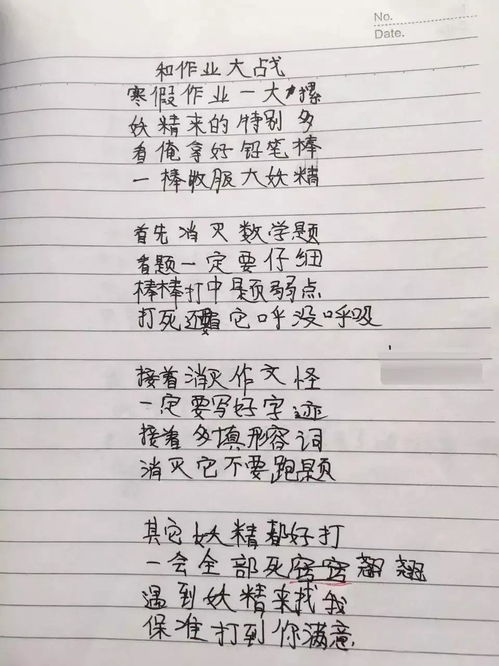 No.
Date.
和作业大战
寒假作业一大摞
妖精来的特别多
看俺拿好铅笔棒
一棒收服大妖精
首先消灭数学题
看题一定要仔细
棒棒打中题弱点
打死还要看它呼没呼吸
接着消灭作文怪
一定要写好字迹
接着多填形容词
消灭它不要跑题
其它妖精都好打
一会全部死窍窍翘翘
遇到妖精来找我
保准打到你满意